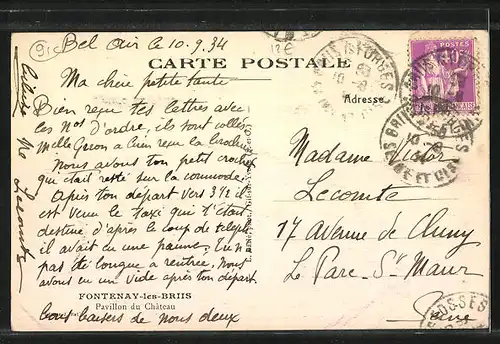 91c
Bel Air le 10.9.34
CARTE POSTALE
Adresse
Ma chère petite tante
Bien reçu tes lettres avec
les Nos d'ordre, ils sont collés
Melle Geron a bien reçu la
Nous avons ton petit crochet
qui était resté sur la commode.
Après ton départ vers 3h½ il
est venu le taxi qui t'était
destiné d'après le coup de teleph
il avait eu une panne. Tu n'as
pas été longue à rentrée. Nous
avons eu un vide après ton départ
FONTENAY-les-BRIIS
Pavillon du Château
bons baisers de nous deux
Lecomte
Madame Victor
Lecomte
17 Avenue de Cluny
Le Parc St Maur
Seine
POSTES